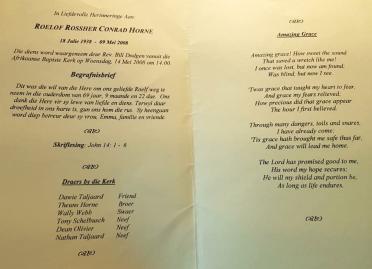 In Liefdevolle Herinneringe Aan:
ROELOF ROSSHER CONRAD HORNE
18 Julie 1938 - 09 Mei 2008
Die diens word waargeneem deur Rev. Bill Dodgen vanuit die
Afrikaanse Baptiste Kerk op Woensdag, 14 Mei 2008 om 14.00.
Begrafnisbrief
Dit was die wil van die Here om ons geliefde Roelf weg te
neem in die ouderdom van 69 jaar, 9 maande en 22 dae. Ons
dank die Here vir sy lewe van liefde en diens. Terwyl daar
droefheid in ons harte is, gaan hom die rus. Sy heengaan
word diep betreur deur sy vrou, Emma, familie en vriende.
Skriflesing: John 14: 1 - 6
Draers by die Kerk
Dawie Taljaard Friend
Theuns Horne Broer
Wally Webb Swaer
Tony Schelbusch Neef
Dean Olivier Neef
Nathan Taljaard Neef
Amazing Grace
Amazing grace! How sweet the sound
That saved a wretch like me!
I once was lost, but now am found,
Was blind, but now I see.
'Twas grace that taught my heart to fear,
And grace my fears relieved;
How precious did that grace appear
The hour I first believed.
Through many dangers, toils and snares,
I have already come;
'Tis grace hath brought me safe thus far,
And grace will lead me home.
The Lord has promised good to me,
His word my hope secures;
He will my shield and portion be,
As long as life endures.